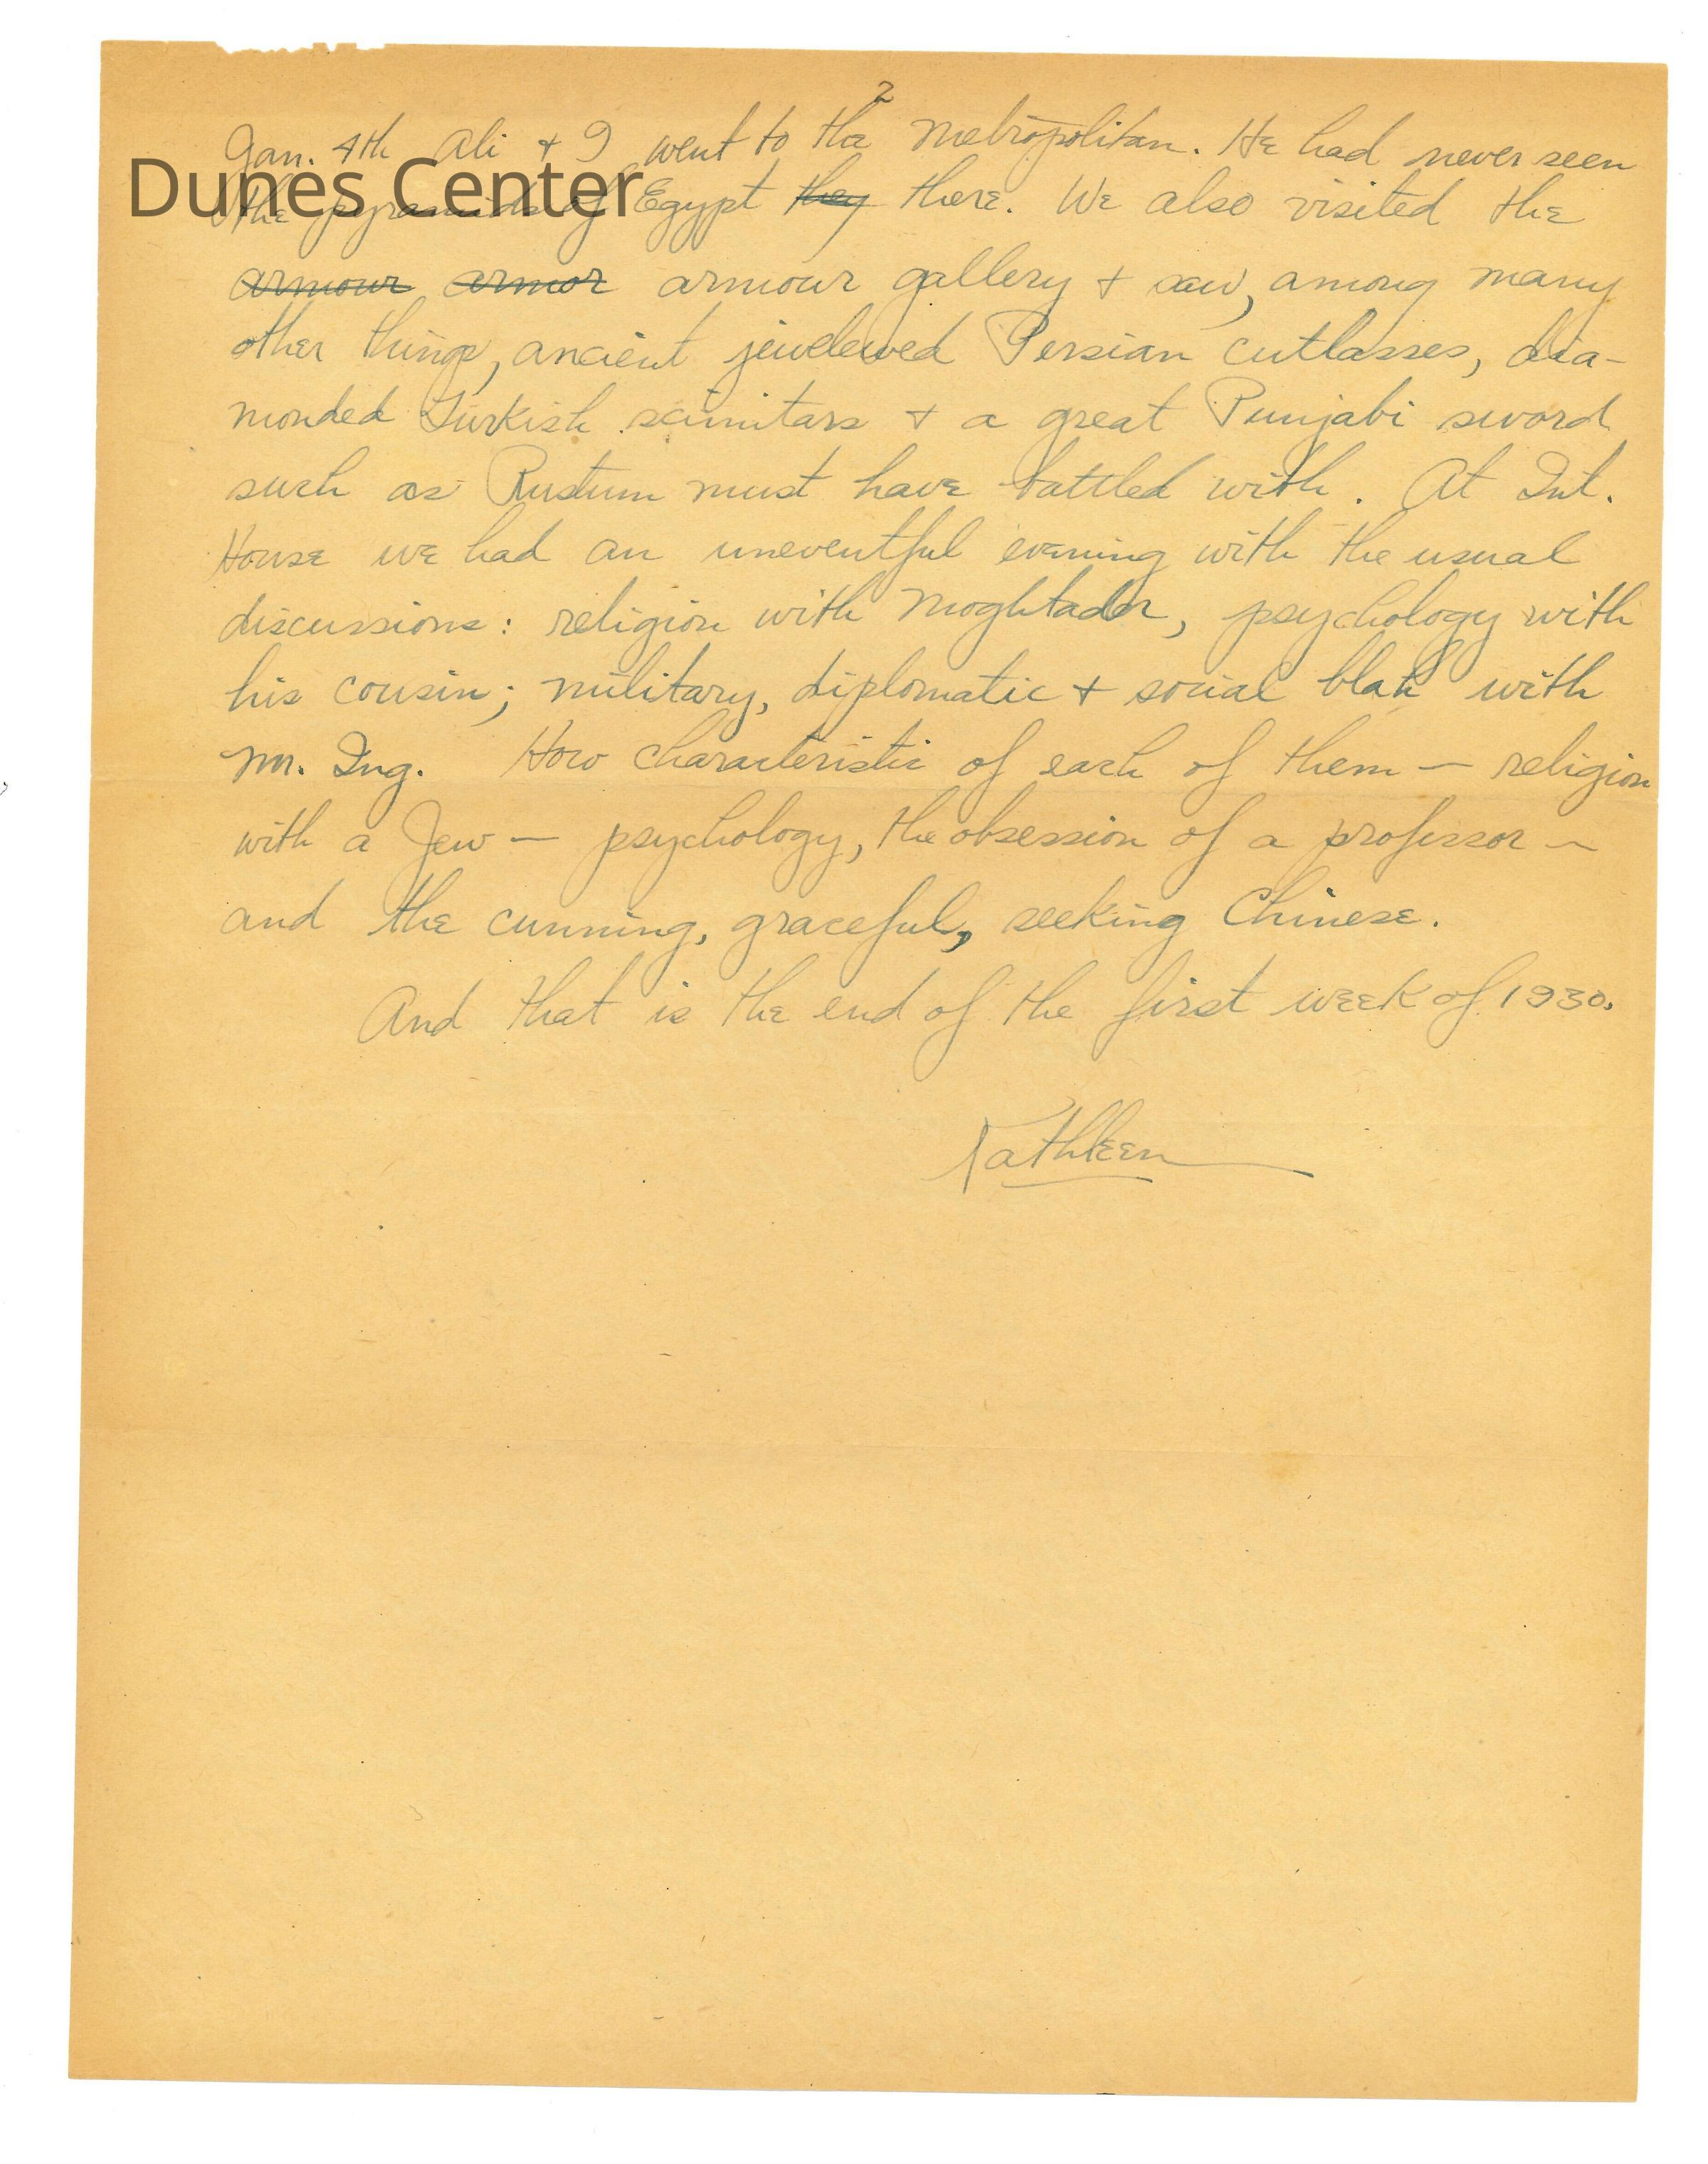 2
Jan. 4th Ali + I went to the Metropolitan. He had never seen
Dunes Center
the pyramids of Egypt they there. We also visited the
armour armor armour gallery + saw, among many
other things, ancient jewelewed Persian cutlasses, dia-
monded Turkish scimitars + a great Punjabi sword
such as Rustum must have battled with. At Int.
House we had an uneventful evening with the usual
discussions: religion with Moghtader, psychology with
his cousin; military, diplomatic + social blah with
Mr. Ing. How characteristic of each of them — religion
with a Jew — psychology, the obsession of a professor —
and the cunning, graceful, seeking Chinese.
And that is the end of the first week of 1930.
Kathleen